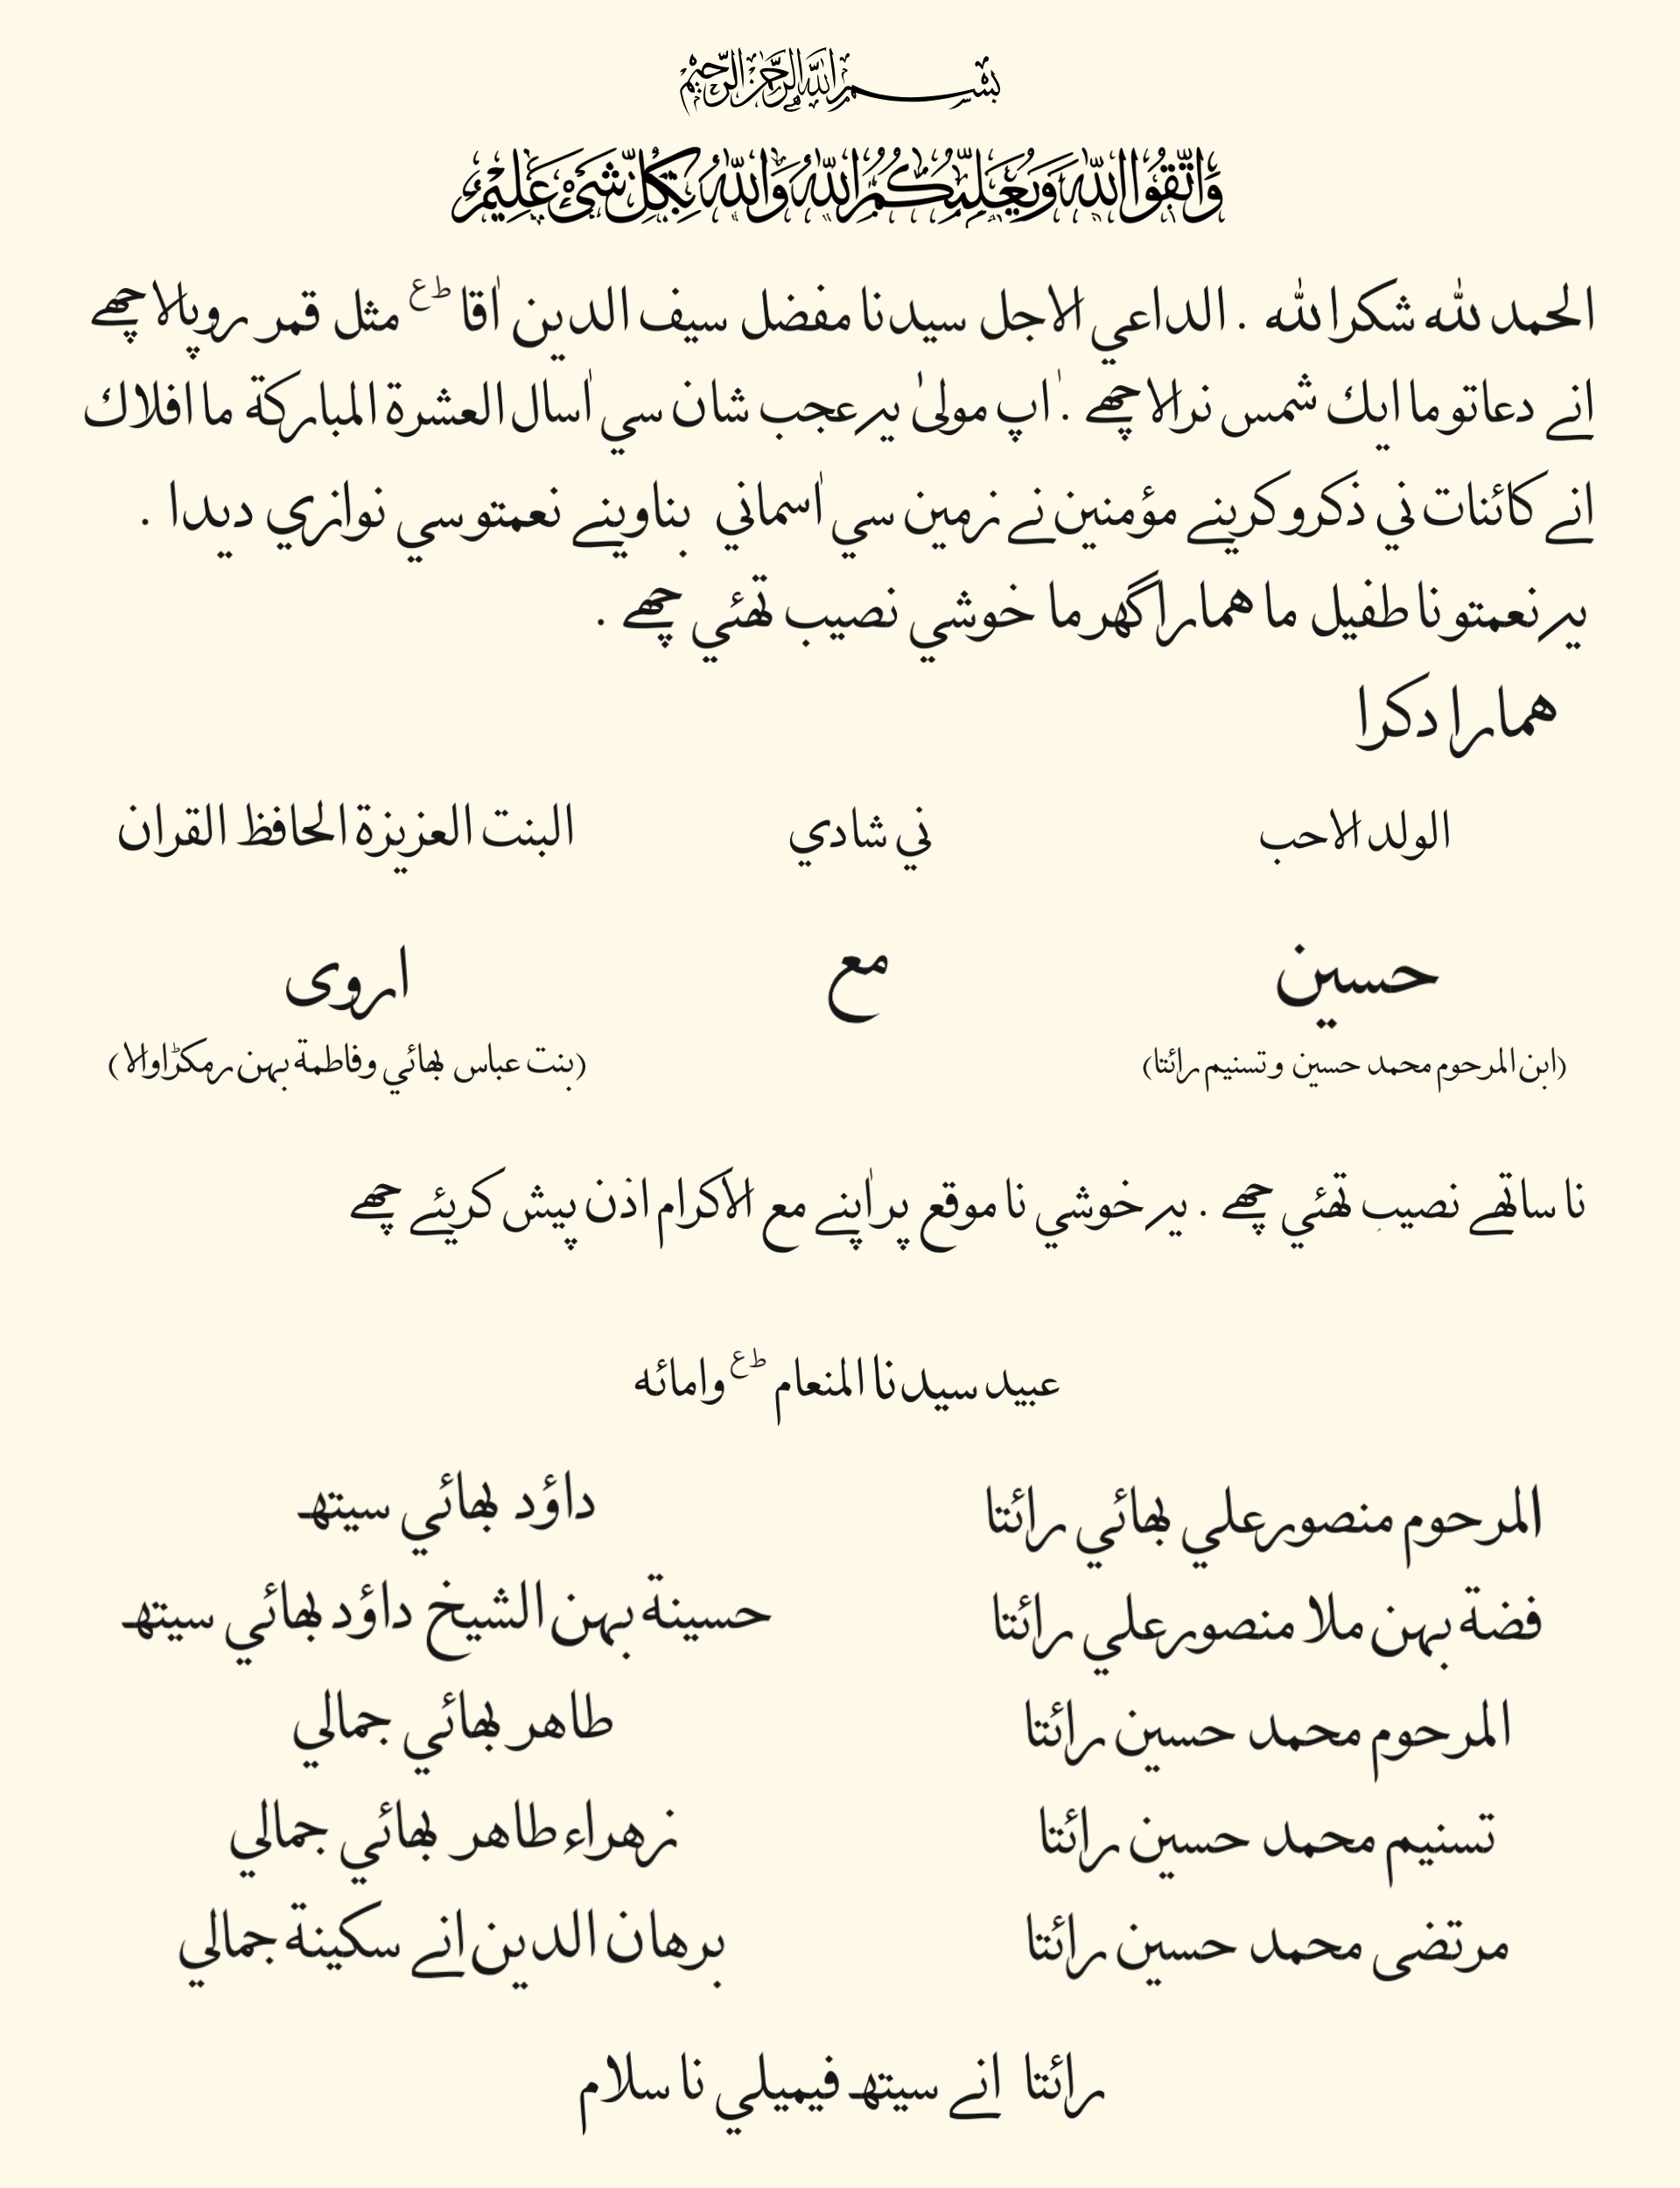 بسم الله الرحمن الرحيم
وَاتَّقُوا اللهَ وَيُعَلِّمُكُمُ اللهُ وَاللهُ بِكُلِّ شَيْءٍ عَلِيْمٌ
الحمد لله شكرا لله . الداعي الاجل سيدنا مفضل سيف الدين اٰقا ط ع مثل قمر روپالا چھے
انے دعاتو ما ايك شمس نرالا چھے . اٰپ مولىٰ يہ عجب شان سي اٰسال العشرة المباركة ما افلاك
انے كائنات ني ذكرو كرينے مؤمنين نے زمين سي اٰسماني بناوينے نعمتو سي نوازي ديدا .
يہ نعمتو نا طفيل ما همارا گھر ما خوشي نصيب تھئي چھے .
همارا دكرا
الولد الاحب ني شادي البنت العزيزة الحافظ القران
حسين مع اروى
(ابن المرحوم محمد حسين و تسنيم رائتا) (بنت عباس بھائي و فاطمة بہن رمكڑاوالا)
نا ساتھے نصيب تھئي چھے . يہ خوشي نا موقع پر اٰپنے مع الاكرام اذن پيش كريئے چھے
عبيد سيدنا المنعام ط ع وامائه
المرحوم منصورعلي بھائي رائتا داؤد بھائي سيتھ
فضة بہن ملا منصورعلي رائتا حسينة بہن الشيخ داؤد بھائي سيتھ
المرحوم محمد حسين رائتا طاهر بھائي جمالي
تسنيم محمد حسين رائتا زهراء طاهر بھائي جمالي
مرتضى محمد حسين رائتا برهان الدين انے سكينة جمالي
رائتا انے سيتھ فيميلي نا سلام